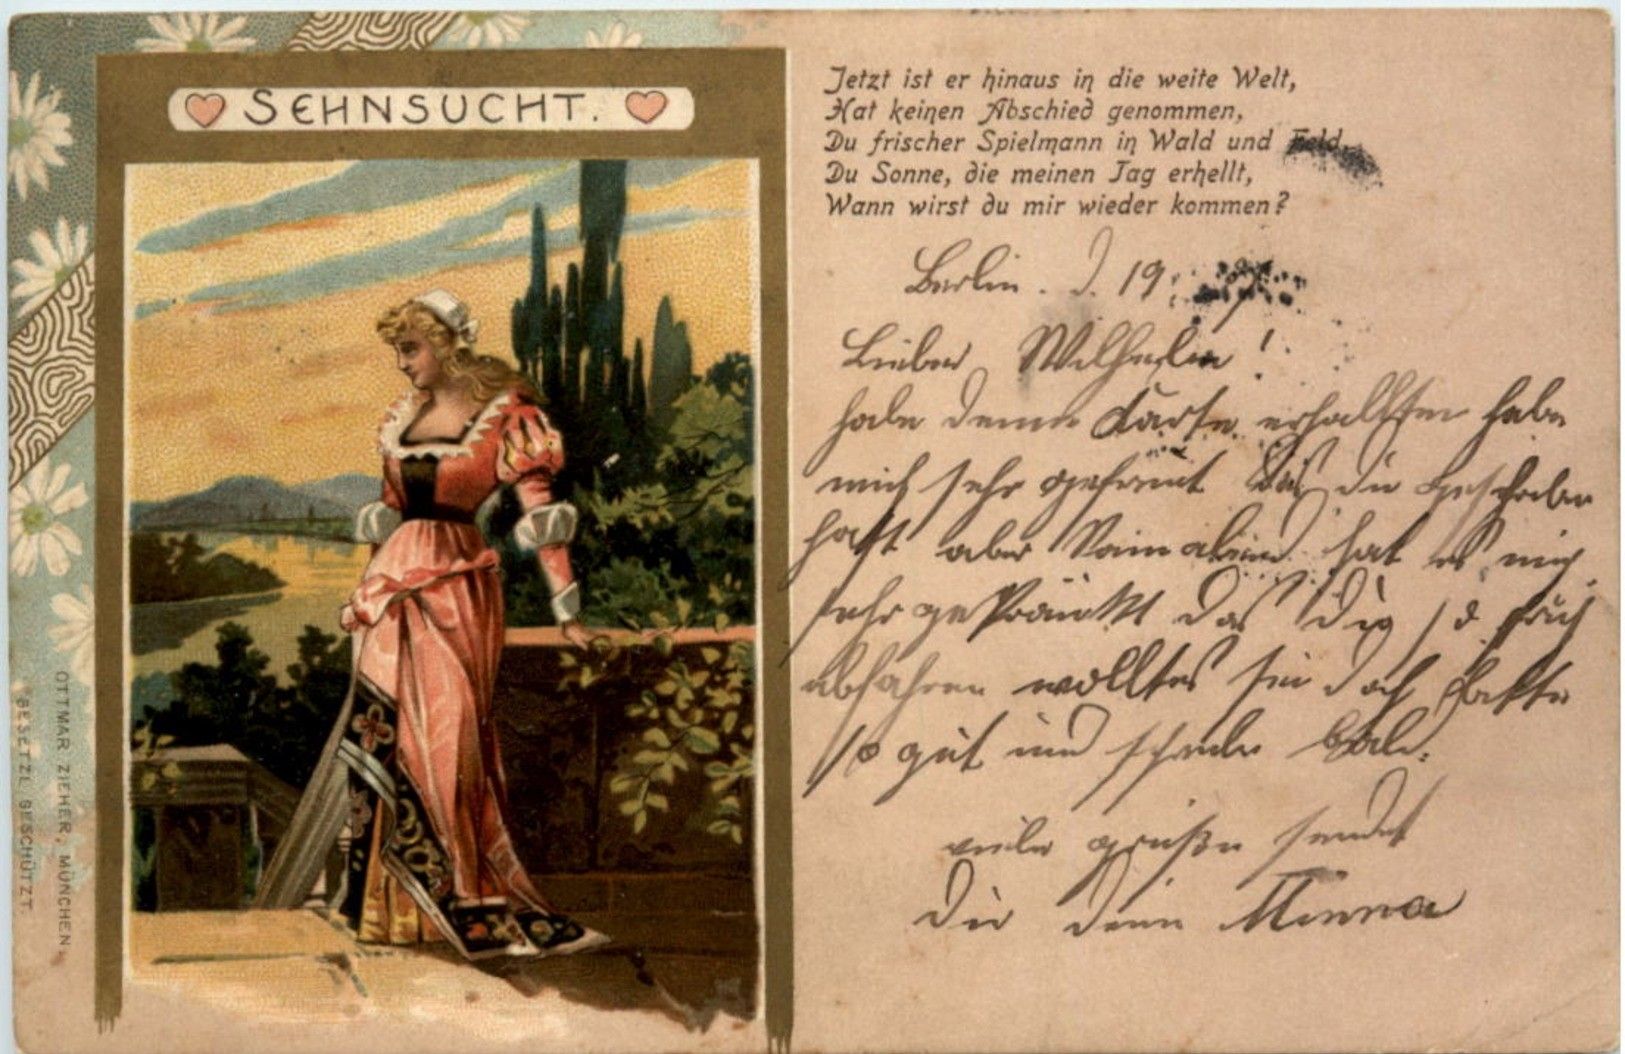 SEHNSUCHT.
Jetzt ist er hinaus in die weite Welt,
Hat keinen Abschied genommen,
Du frischer Spielmann in Wald und Feld,
Du Sonne, die meinen Tag erhellt,
Wann wirst du mir wieder kommen?
Berlin. d. 19.
Lieber Wilhelm!
habe deine Karte erhallten habe
mich sehr gefreut das du geschriben
hast aber hat es mich
sehr gekränkt das du so früh
abfahren wolltes sei doch
so gut und schreibe bald.
viele grüße sendet
Dir deine Minna
OTTMAR ZIEHER, MÜNCHEN.
GESETZL. GESCHÜTZT.